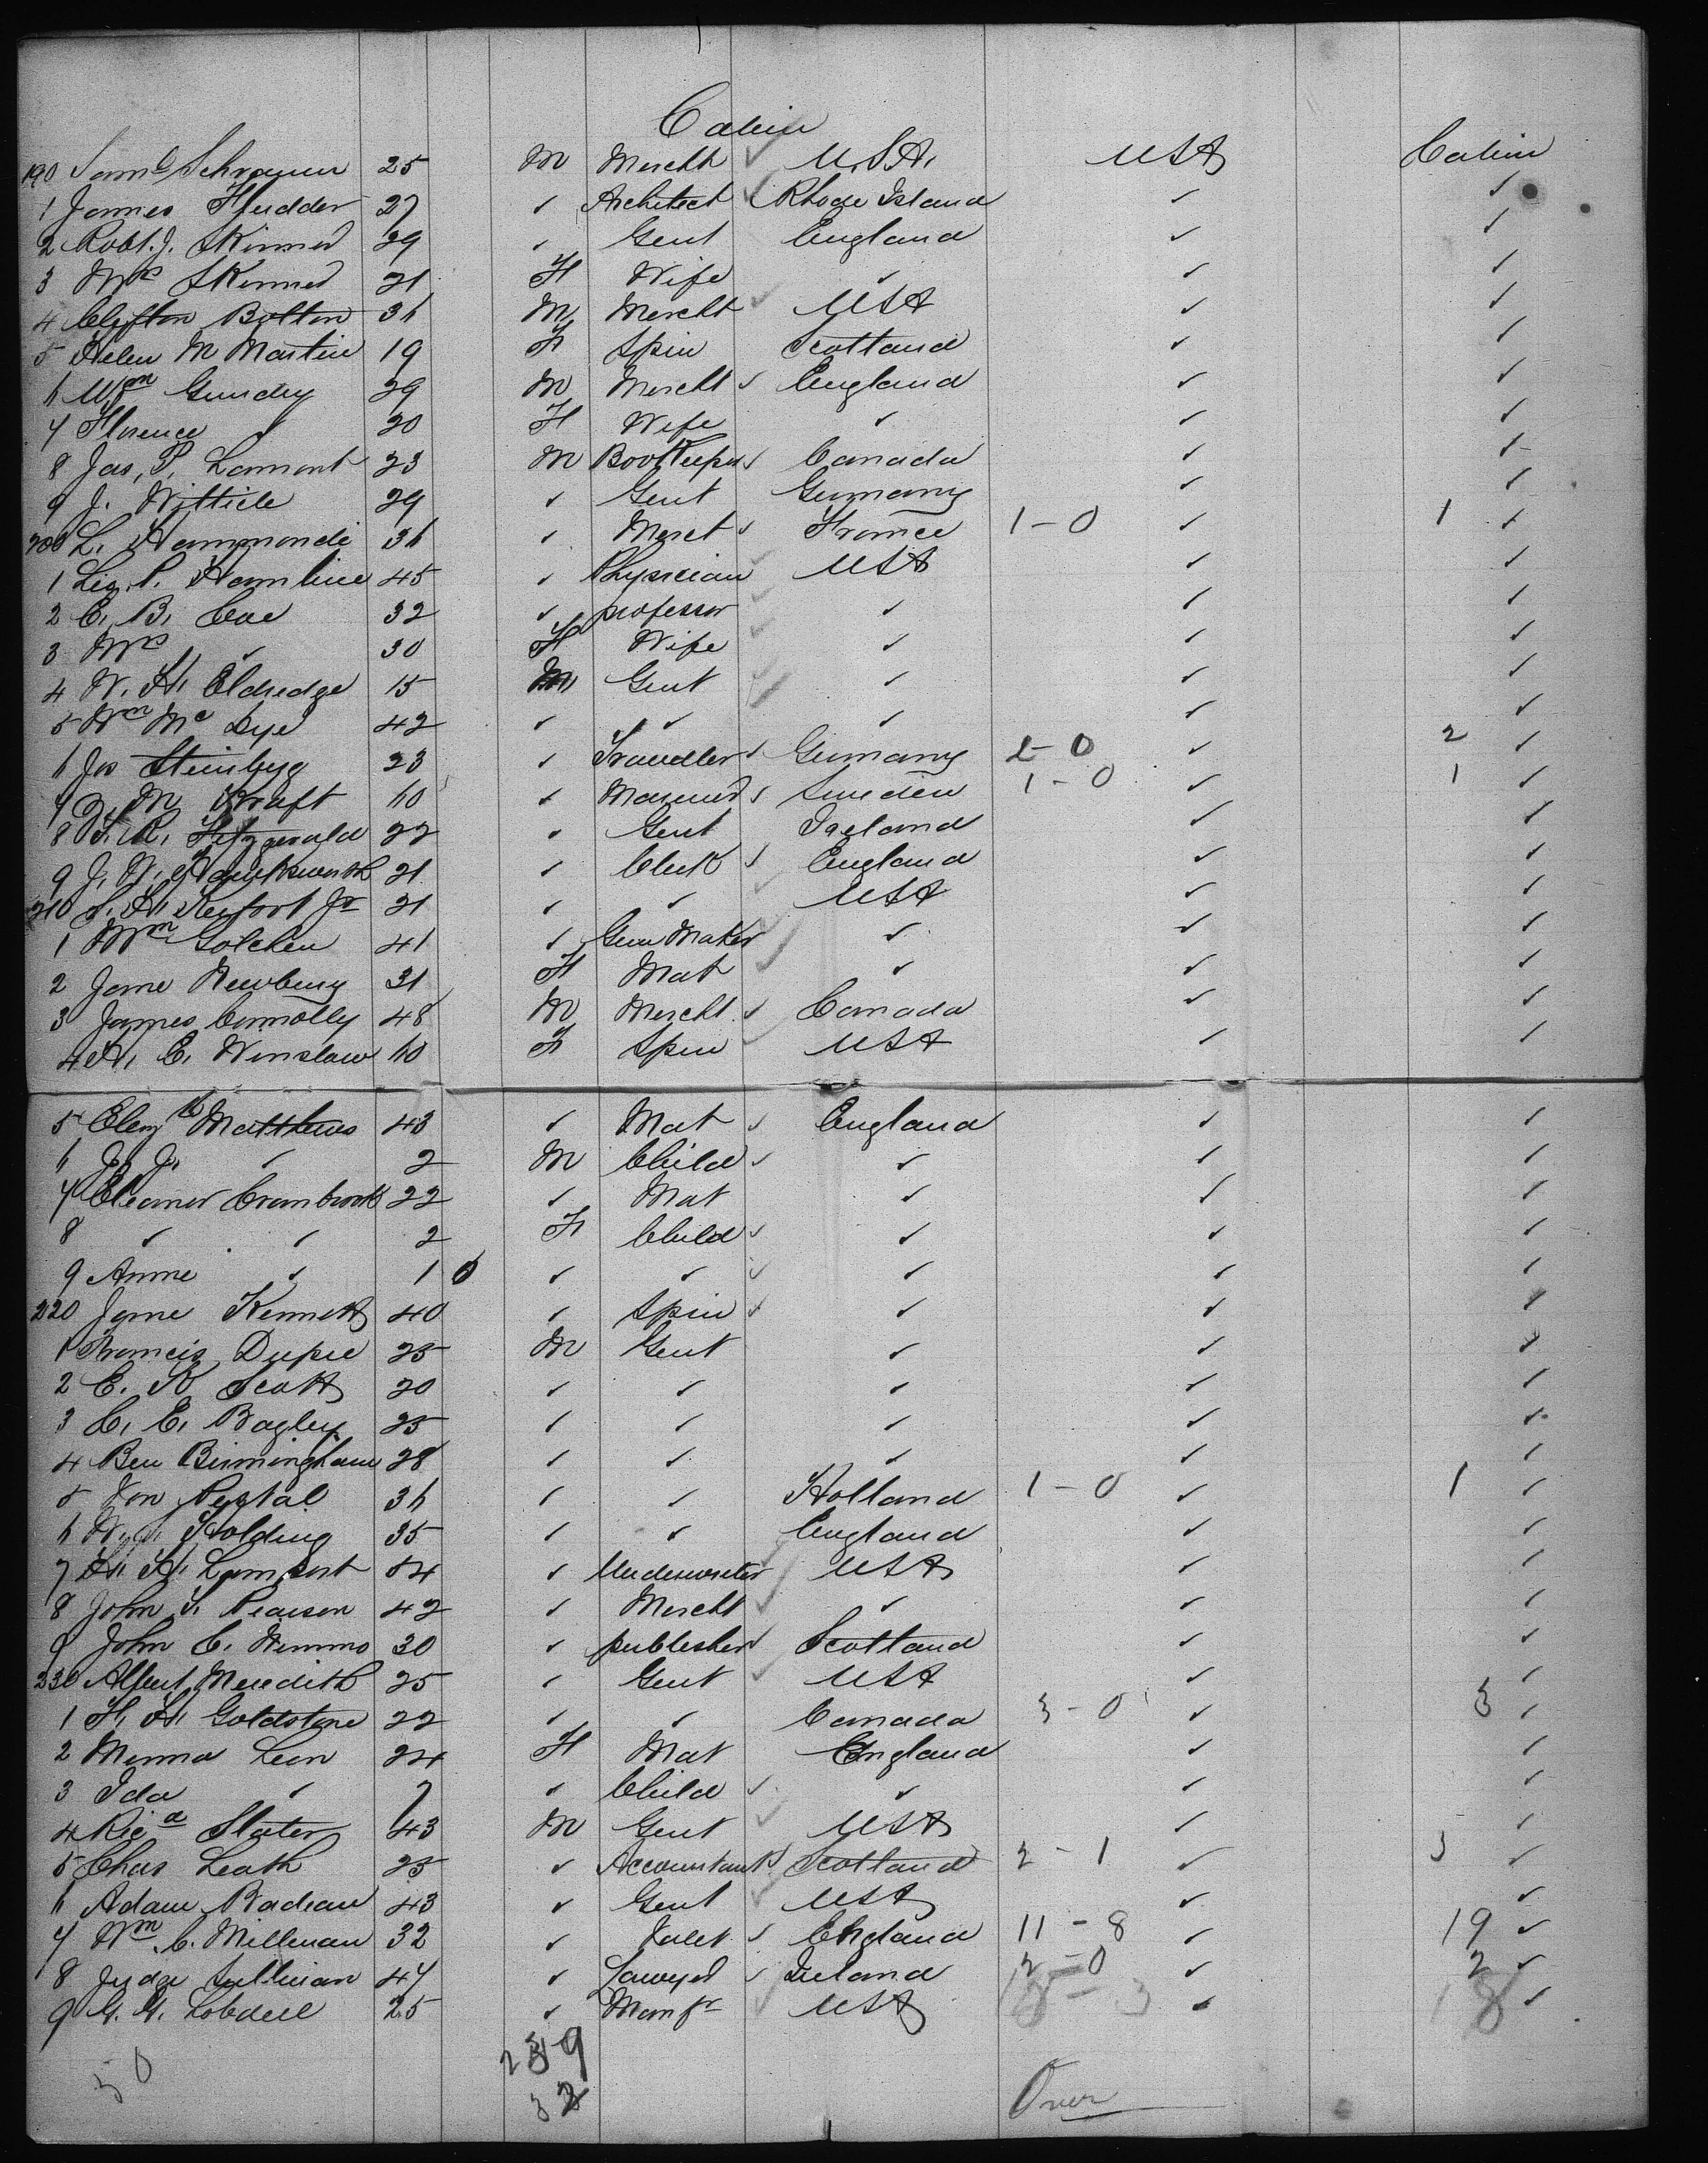 Cabin
190 Saml Schramm 25 M Mercht ✓ U.S.A. USA Cabin
1 James Hudder 27 ✓ Architect ✓ Rhode Island ✓ ✓
2 Robt. J. Skinner 29 ✓ Gent England ✓ ✓
3 Mrs Skinner 21 F Wife ✓ ✓ ✓
4 Clifton Bolton 36 M Mercht ✓ USA ✓ ✓
5 Helen M Martin 19 F Spin Scotland ✓ ✓
6 Wm Gundry 29 M Mercht ✓ England ✓ ✓
7 Florence ✓ 20 F Wife ✓ ✓ ✓
8 Jas. P. Lamont 23 M Bookkeeper ✓ Canada ✓ ✓
9 J. Wittich 29 ✓ Gent Germany ✓ ✓
200 L. Hammonde 36 ✓ Merct ✓ France 1-0 ✓ 1 ✓
1 P. Hamline 45 ✓ Physician ✓ USA ✓ ✓
2 C. B. Coe 32 ✓ professor ✓ ✓ ✓ ✓
3 Mrs ✓ 30 F Wife ✓ ✓ ✓ ✓
4 W. H. Eldredge 15 M Gent ✓ ✓ ✓ ✓
5 Wm Mc Dye 42 ✓ ✓ ✓ ✓ ✓
6 Jos Steinberg 23 ✓ Traveller ✓ Germany 2-0 ✓ 2 ✓
7 M Kraft 60 ✓ Mariner ✓ Sweden 1-0 ✓ 1 ✓
8 T. R. Fitzgerald 22 ✓ Gent Ireland ✓ ✓
9 J. W. Hawksworth 21 ✓ Clerk ✓ England ✓ ✓
210 S. H. Kerfoot Jr 21 ✓ ✓ ✓ USA ✓ ✓
1 Wm Golcher 41 ✓ Gun Maker ✓ ✓ ✓ ✓
2 Jane Newbury 31 F Mat ✓ ✓ ✓ ✓
3 James Connolly 48 M Mercht ✓ Canada ✓ ✓
4 H. E. Winslow 60 F Spin ✓ USA ✓ ✓
5 Elizth Matthews 43 ✓ Mat ✓ England ✓ ✓
6 J. J. ✓ 2 M Child ✓ ✓ ✓ ✓
7 Eleanor Crambrook 22 ✓ Mat ✓ ✓ ✓
8 ✓ ✓ 2 F Child ✓ ✓ ✓ ✓
9 Annie ✓ 1 0 ✓ ✓ ✓ ✓ ✓ ✓
220 Jane Kennett 40 ✓ Spin ✓ ✓ ✓ ✓
1 Francis Dupre 25 M Gent ✓ ✓ ✓
2 E. K Scott 20 ✓ ✓ ✓ ✓ ✓
3 C. E. Bagley 25 ✓ ✓ ✓ ✓ ✓
4 Ben Birmingham 28 ✓ ✓ ✓ ✓ ✓
5 Von Pestal 36 ✓ ✓ Holland 1-0 ✓ 1 ✓
6 W. J. Holding 35 ✓ ✓ England ✓ ✓
7 H. H. Lamport 54 ✓ Underwriter ✓ USA ✓ ✓
8 John S. Pearson 42 ✓ Mercht ✓ ✓ ✓ ✓
9 John C. Nimmo 30 ✓ publisher ✓ Scotland ✓ ✓
230 Albert Meredith 25 ✓ Gent ✓ USA ✓ ✓
1 H. H. Goldstone 22 ✓ ✓ Canada 3-0 ✓ 3 ✓
2 Menna Leon 24 F Mat England ✓ ✓
3 Ida ✓ 7 ✓ Child ✓ ✓ ✓ ✓
4 Ricd Slater 43 M Gent ✓ USA ✓ ✓
5 Chas Leath 25 ✓ Accountant ✓ Scotland 2-1 ✓ 3 ✓
6 Adam Badeau 43 ✓ Gent ✓ USA ✓ ✓
7 Wm C. Millman 32 ✓ Valet ✓ England 11-8 ✓ 19 ✓
8 Judge Sullivan 47 ✓ Lawyer ✓ Ireland 2-0 ✓ 2 ✓
9 G. G. Lobdell 25 ✓ Manfr ✓ USA 18-3 ✓ 18 ✓
50 239
32 Over